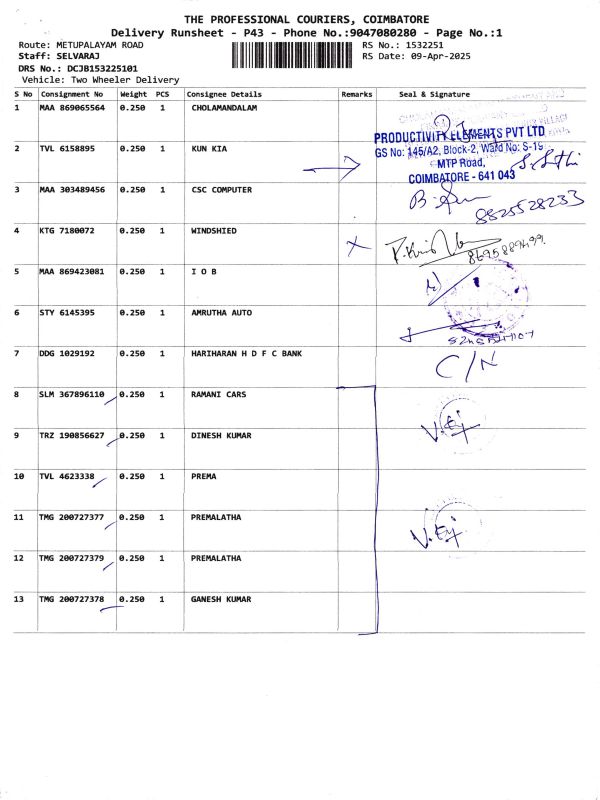 THE PROFESSIONAL COURIERS, COIMBATORE
Delivery Runsheet - P43 - Phone No.:9047080280 - Page No.:1
Route: METUPALAYAM ROAD RS No.: 1532251
Staff: SELVARAJ RS Date: 09-Apr-2025
DRS No.: DCJB153225101
Vehicle: Two Wheeler Delivery
S No Consignment No Weight PCS Consignee Details Remarks Seal & Signature
1 MAA 869065564 0.250 1 CHOLAMANDALAM
PRODUCTIVITY ELEMENTS PVT LTD
2 TVL 6158895 0.250 1 KUN KIA GS No: 145/A2, Block-2, Ward No: S-19
MTP Road,
COIMBATORE - 641 043
3 MAA 303489456 0.250 1 CSC COMPUTER
8825528233
4 KTG 7180072 0.250 1 WINDSHIED
5 MAA 869423081 0.250 1 I O B
6 STY 6145395 0.250 1 AMRUTHA AUTO
7 DDG 1029192 0.250 1 HARIHARAN H D F C BANK C/N
8 SLM 367896110 0.250 1 RAMANI CARS
9 TRZ 190856627 0.250 1 DINESH KUMAR
10 TVL 4623338 0.250 1 PREMA
11 TMG 200727377 0.250 1 PREMALATHA
12 TMG 200727379 0.250 1 PREMALATHA
13 TMG 200727378 0.250 1 GANESH KUMAR